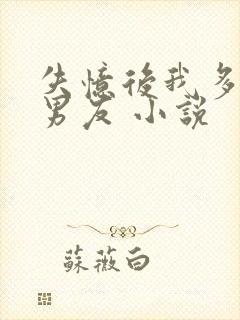 失憶後我多
男友 小說
蘇薇白